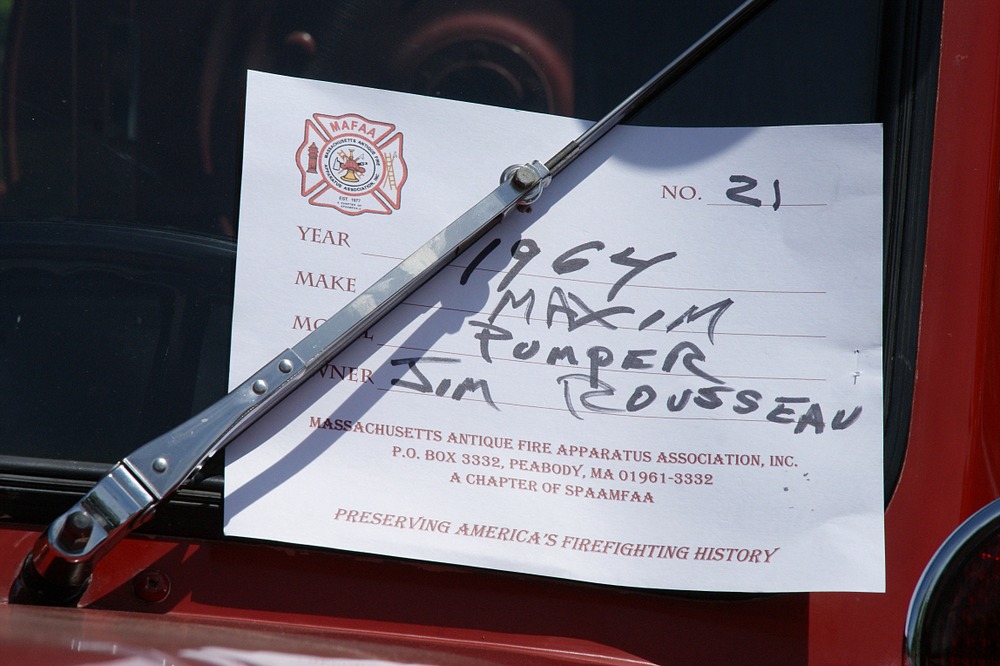 MAFAA
MASSACHUSETTS ANTIQUE FIRE
APPARATUS ASSOCIATION, INC.
EST. 1977
A CHAPTER OF
SPAAMFAA
NO. 21
YEAR 1964
MAKE MAXIM
PUMPER
JIM ROUSSEAU
MASSACHUSETTS ANTIQUE FIRE APPARATUS ASSOCIATION, INC.
P.O. BOX 3332, PEABODY, MA 01961-3332
A CHAPTER OF SPAAMFAA
PRESERVING AMERICA'S FIREFIGHTING HISTORY